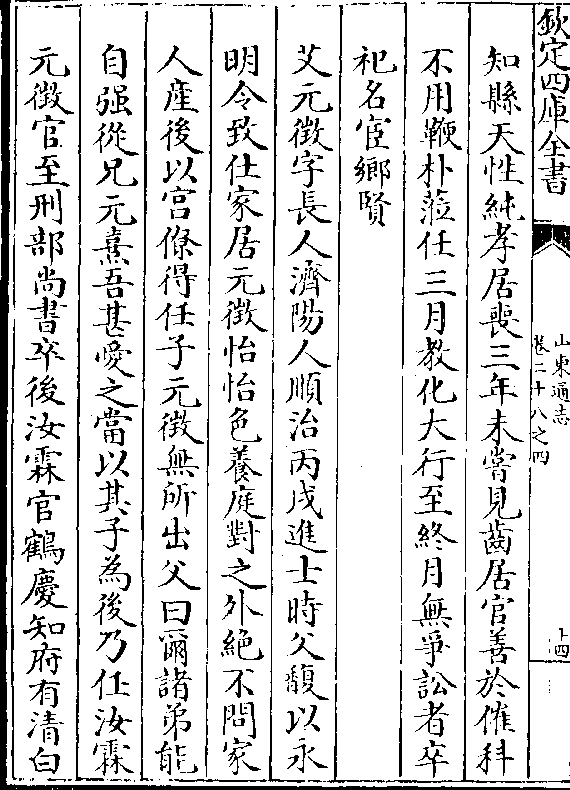 欽定四庫全書
山東通志
卷二十八之四
十四
知縣天性純孝居喪三年未嘗見齒居官善於催科
不用鞭朴蒞任三月教化大行至終月無爭訟者卒
祀名宦鄉賢
艾元徵字長人濟陽人順治丙戌進士時父馥以永
明令致仕家居元徵怡怡色養庭對之外絶不問家
人產後以宫僚得任子元徵無所出父曰爾諸弟能
自强從兄元熹吾甚愛之當以其子為後乃任汝霖
元徵官至刑部尚書卒後汝霖官鶴慶知府有清白